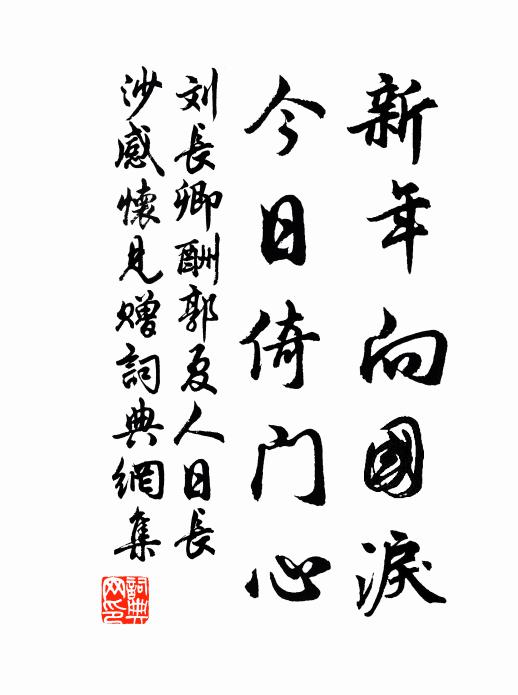 新年向國淚
今日倚门心
刘長卿酬郭夏人日長
沙感懷見贈詞典網集
詞典网印